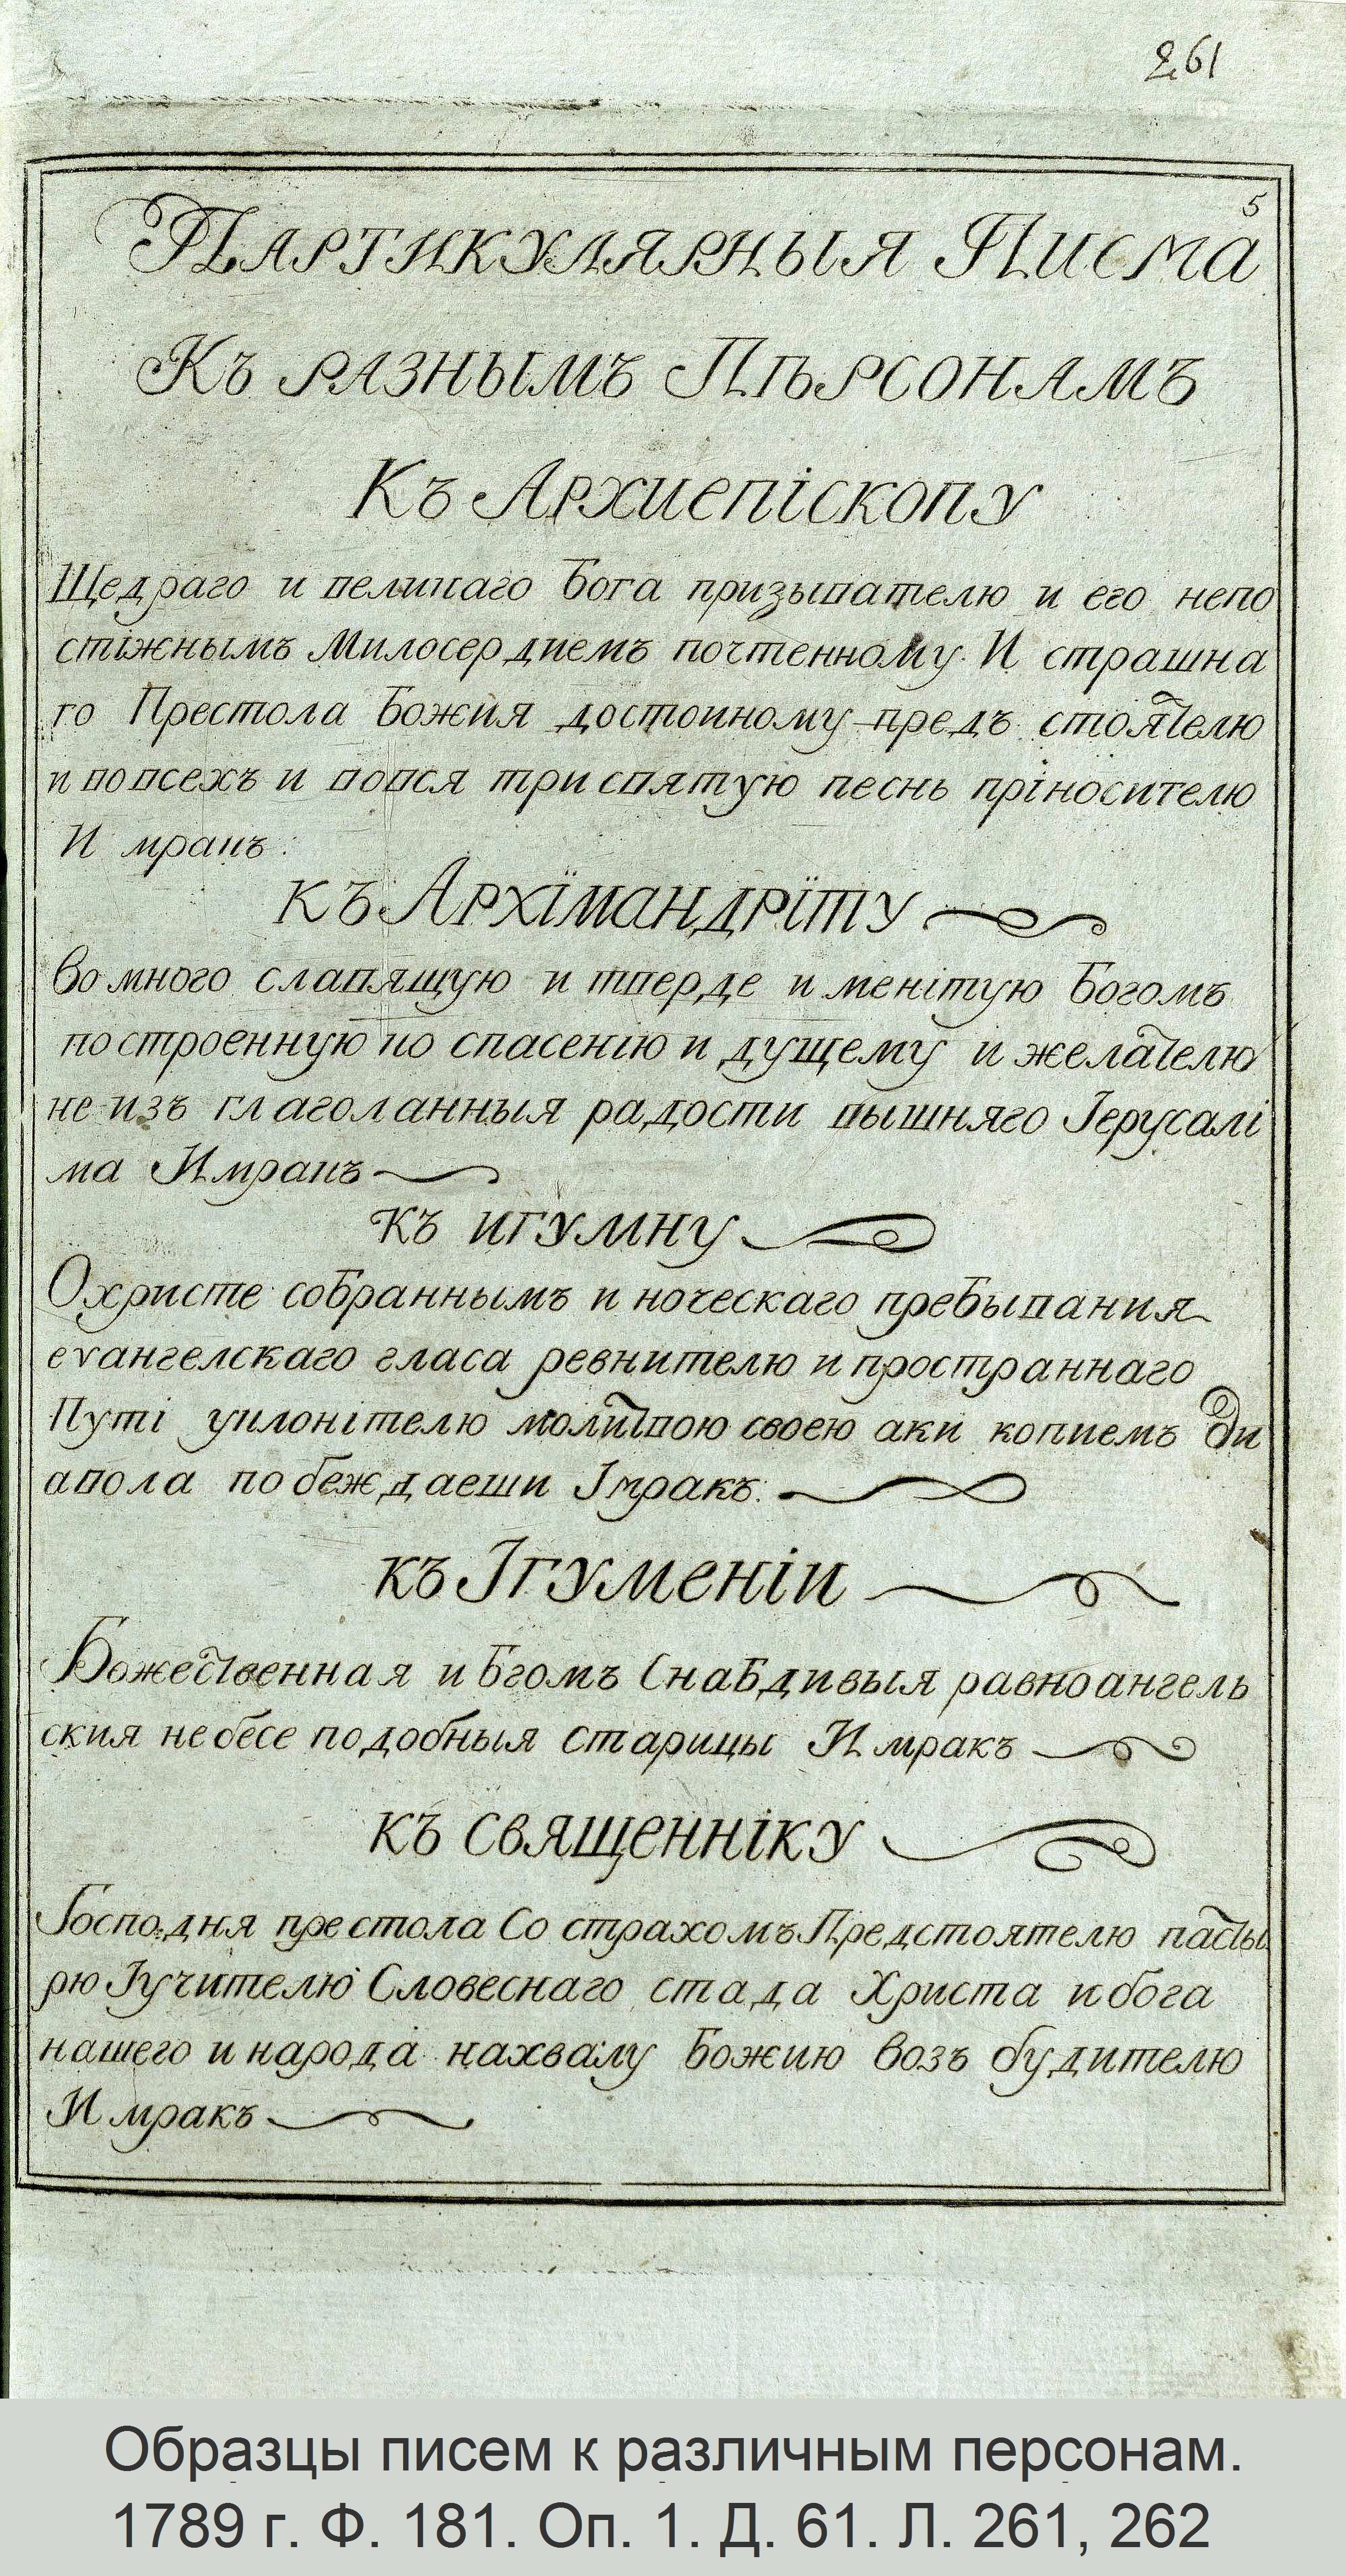 261
5
Партикулярныя Писма
Къ разнымъ Пѣрсонамъ
Къ Архиепіскопу
Щедраго и великаго Бога призывателю и его непо
стіжнымъ Милосердиемъ почтенному И страшна
го Престола Божия достоиному предъ стоятелю
и во всехъ и вовся три святую песнь пріносителю
И мракъ:
къ Архїмандрїту
во много славящую и тверде и менітую Богомъ
построенную ко спасенію и дущему и желателю
не изъ глаголанныя радости вышняго Іерусалі
ма Имракъ
къ игумну
Охристе собраннымъ и ноческаго пребывания
еѵангелскаго гласа ревнителю и пространнаго
Путі уклонітелю молитвою своею аки копиемъ Ди
авола побеждаеши Імракъ:
къ Ігуменіи
Божественная и Бгомъ Снабдивыя равноангель
ския небесе подобныя старицы Имракъ
къ священніку
Господня престола Со страхомъ Предстоятелю пасты
рю Іучителю Словеснаго стада Христа и бога
нашего и народа нахвалу Божию возъ будителю
И мракъ
Образцы писем к различным персонам.
1789 г. Ф. 181. Оп. 1. Д. 61. Л. 261, 262